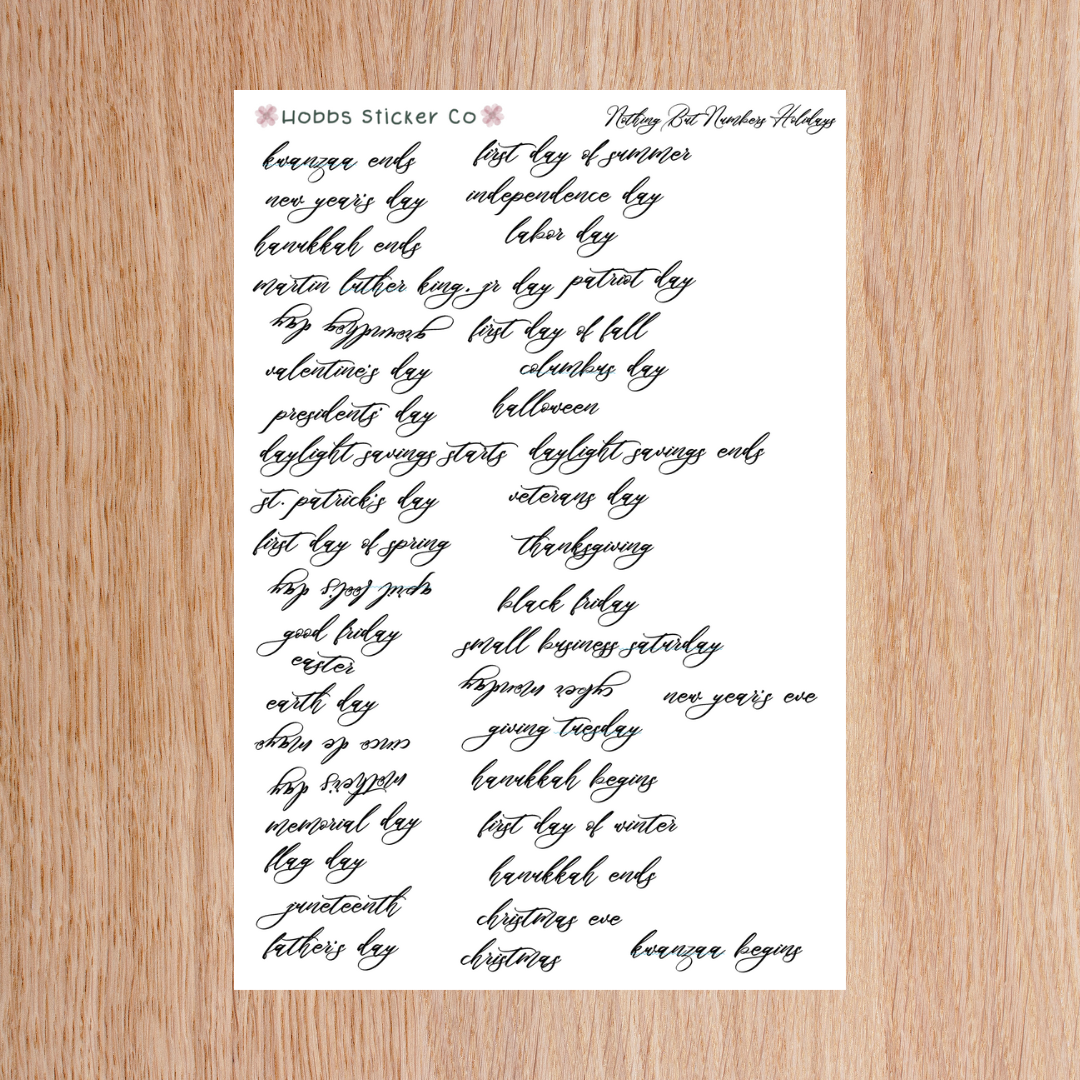 Hobbs Sticker Co
Nothing But Numbers Holidays
kwanzaa ends
new year's day
hanukkah ends
martin luther king, jr day
groundhog day
valentine's day
presidents' day
daylight savings starts
st. patrick's day
first day of spring
april fool's day
good friday
easter
earth day
cinco de mayo
mother's day
memorial day
flag day
juneteenth
father's day
first day of summer
independence day
labor day
patriot day
first day of fall
columbus day
halloween
daylight savings ends
veterans day
thanksgiving
black friday
small business saturday
cyber monday
giving tuesday
hanukkah begins
first day of winter
hanukkah ends
christmas eve
christmas
new year's eve
kwanzaa begins